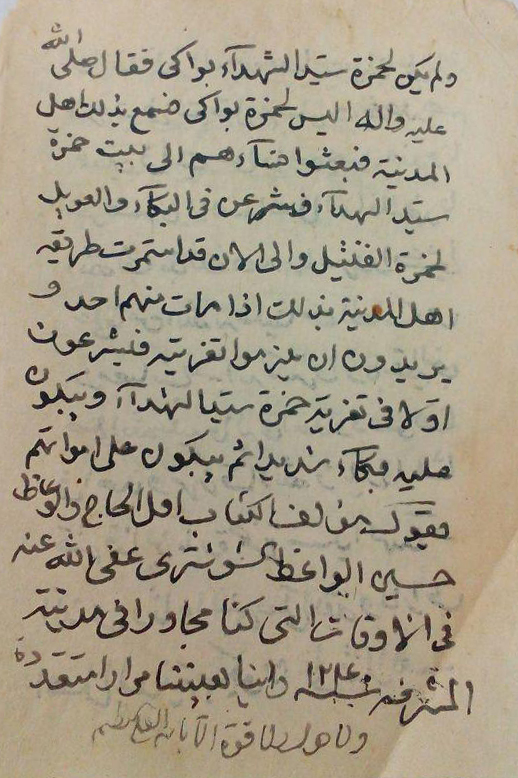 ولم يكن لحمزة سيد الشهداء بواكي فقال صلى الله
عليه واله اليس لحمزة بواكى فسمع بذلك اهل
المدينة فبعثوا نساءهم الى بيت حمزة
سيد الشهداء فشرعن فى البكاء والعويل
لحمزة القتيل والى الان قد استمرت طريقة
اهل المدينة بذلك اذا مات منهم احد و
يريدون ان يلزموا تعزيته فيشرعون
اولا فى تعزية حمزة سيد الشهداء ويبكون
عليه بكاء شديدا ثم يبكون على امواتهم
يقول مؤلف الكتاب اقل الحاج والوعاظ
حسين الواعظ الشوشترى عفى الله عنه
فى الاوقات التى كنا مجاورا فى مدينة
المشرفة سنة ١٢٤ راينا بعيننا مرارا متعددة
ولا حول ولا قوة الا بالله العلي العظيم